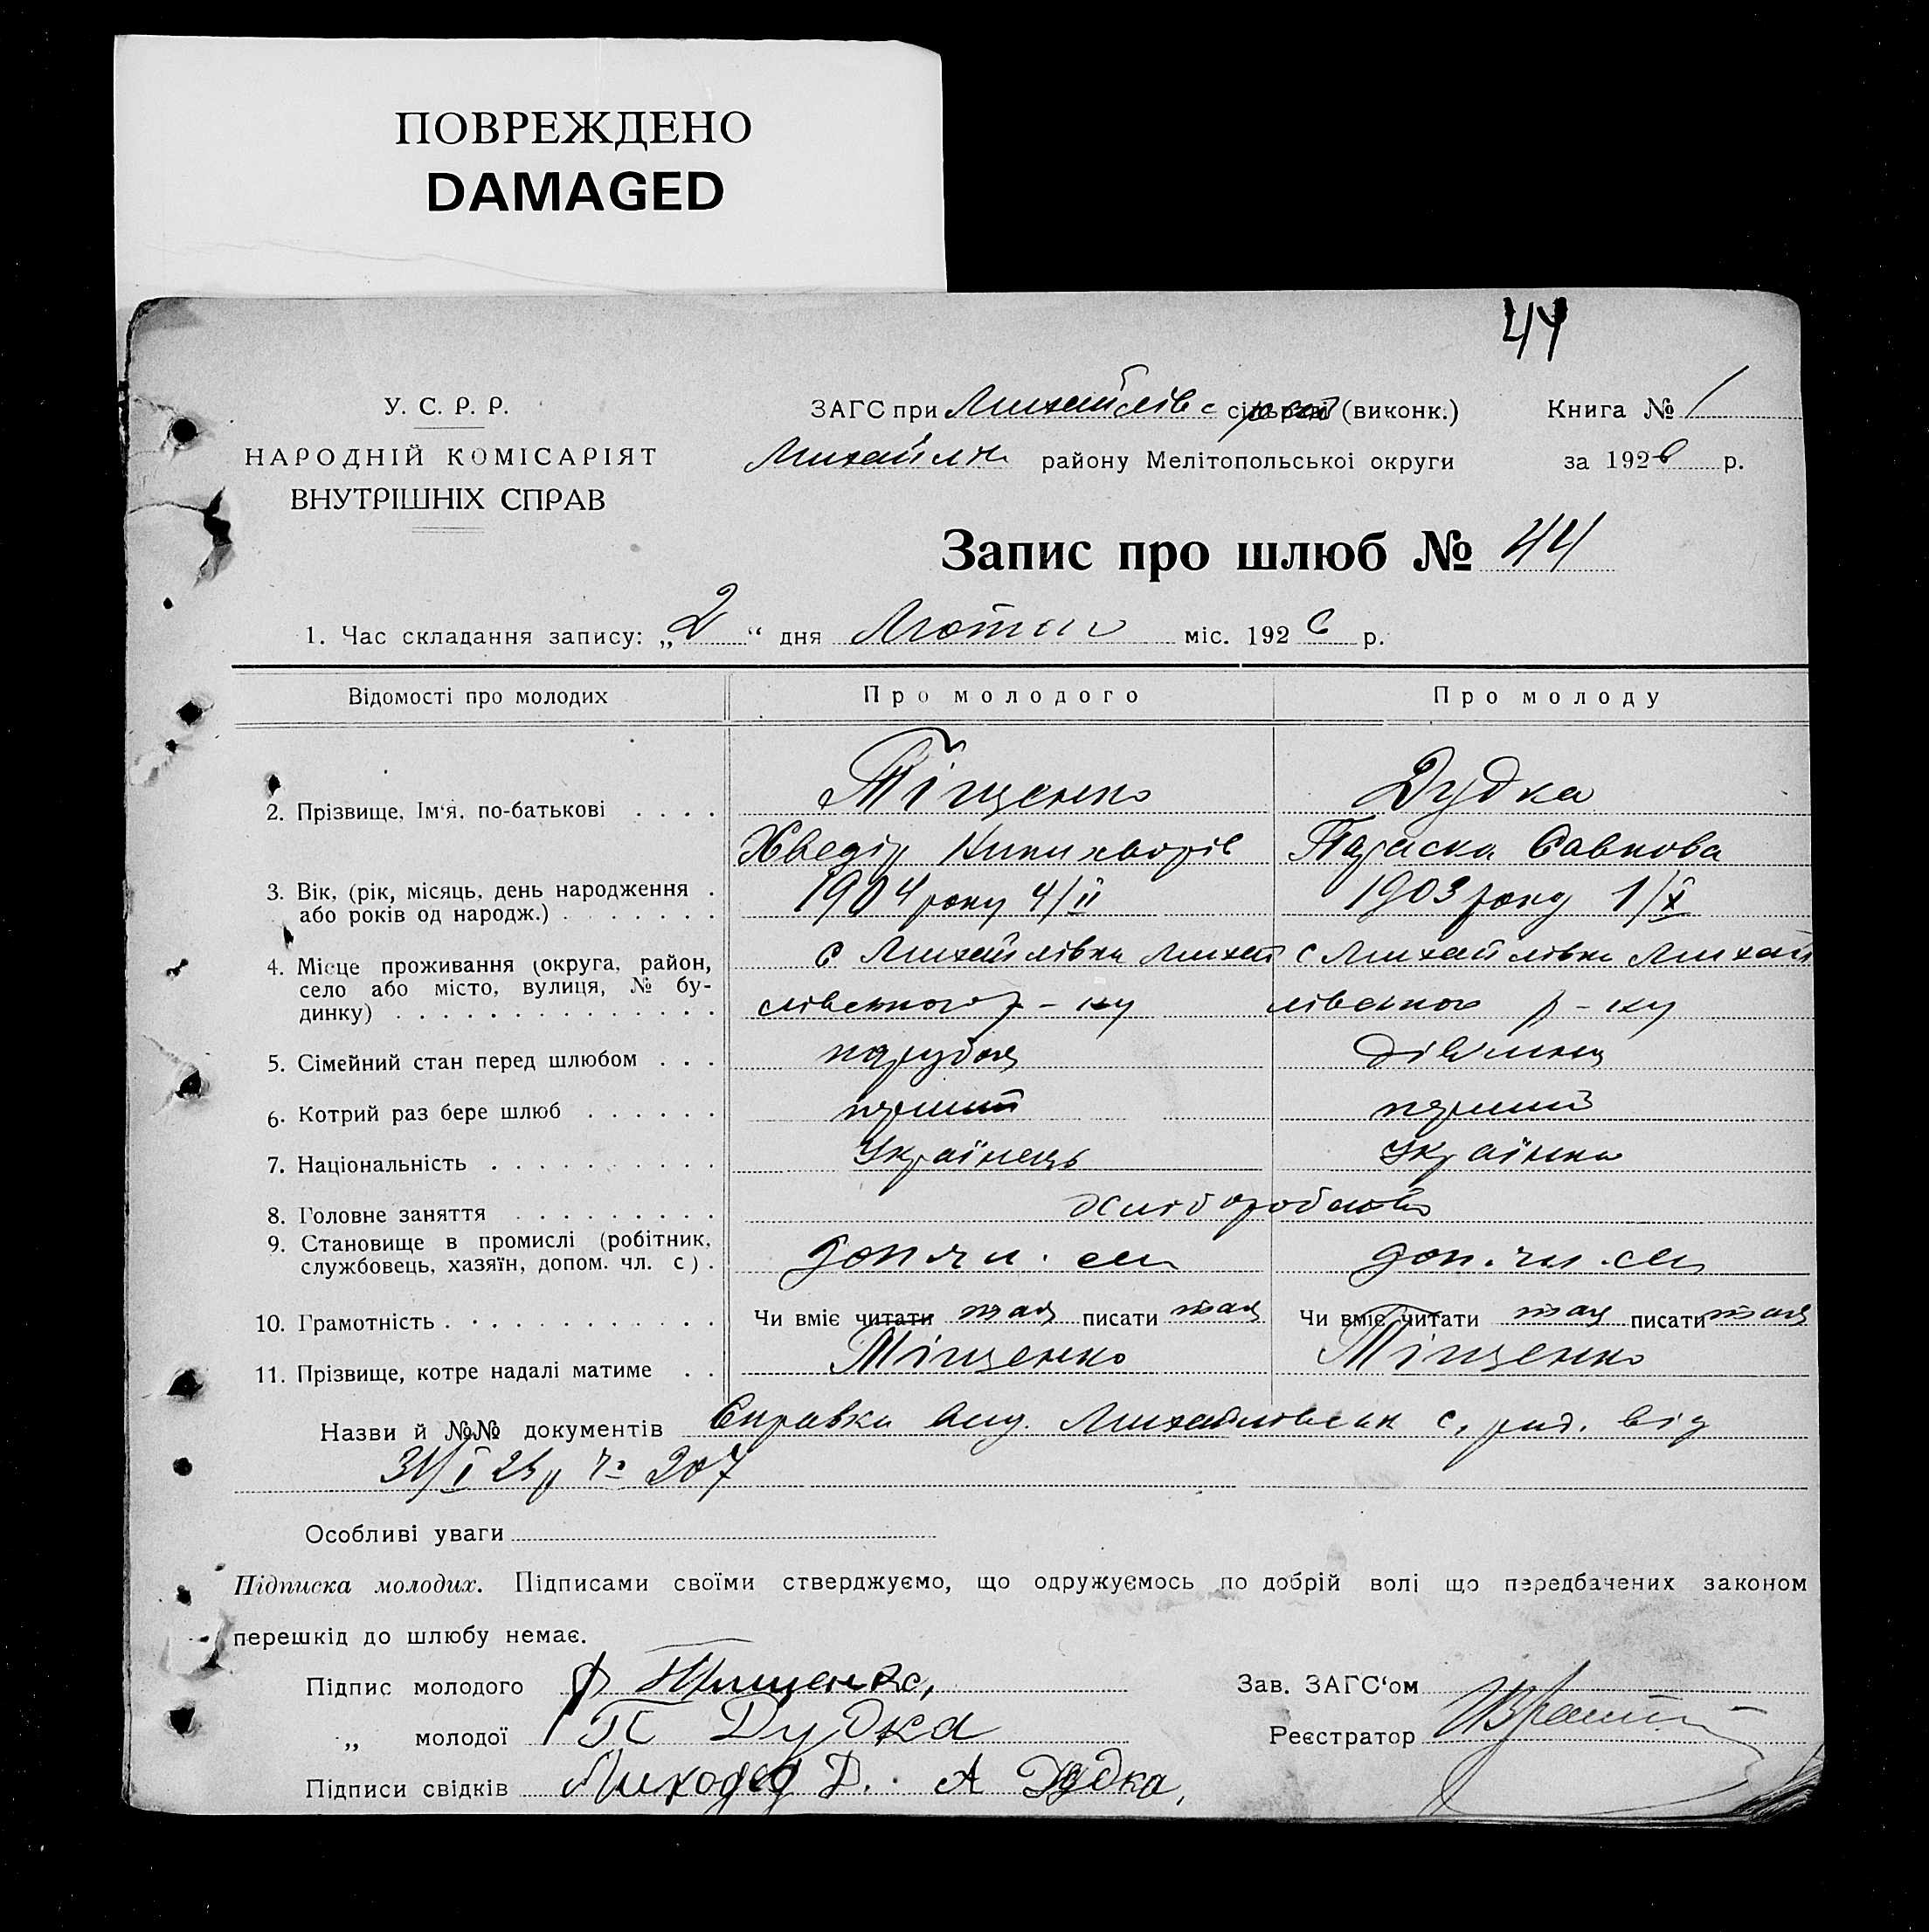 ПОВРЕЖДЕНО
DAMAGED
44
У. С. Р. Р.
НАРОДНІЙ КОМІСАРІЯТ
ВНУТРІШНІХ СПРАВ
ЗАГС при Михайлівс (виконк.) Книга № 1
Михайлів району Мелітопольської округи за 1926 р.
Запис про шлюб № 44
1. Час складання запису: „2“ дня Лютого міс. 1926 р.
Відомості про молодих Про молодого Про молоду
2. Прізвище, Ім'я, по-батькові . . . . Тіщенко Дудка
Хведір Никихворів Параска Савкова
3. Вік, (рік, місяць, день народження . або років од народж.) . . . . . . . 1904 року 4/II 1903 року 1/X
4. Місце проживання (округа, район, с Михайлівка Михай с Михайлівка Михай
село або місто, вулиця, № бу-
динку) . . . . . . . . . . . . . . лівського р-ну лівського р-ну
5. Сімейний стан перед шлюбом . . . парубок дівчина
6. Котрий раз бере шлюб . . . . . . перший перший
7. Національність . . . . . . . . . . Українець Українка
8. Головне заняття . . . . . . . . . хліборобство
9. Становище в промислі (робітник,
службовець, хазяїн, допом. чл. с) . доп. чл. см доп. чл. см
10. Грамотність . . . . . . . . . . . . Чи вміє читати так писати так Чи вміє читати так писати так
11. Прізвище, котре надалі матиме . . Тіщенко Тіщенко
Назви й №№ документів Справка Михайлівськ с, рад. від
31/I 26 р № 207
Особливі уваги
Підписка молодих. Підписами своїми стверджуємо, що одружуємось по добрій волі що передбачених законом
перешкід до шлюбу немає.
Підпис молодого Ф Тищенко, Зав. ЗАГС'ом
„ молодої П Дудка Реєстратор
Підписи свідків Лиходед Д. А Дудка,